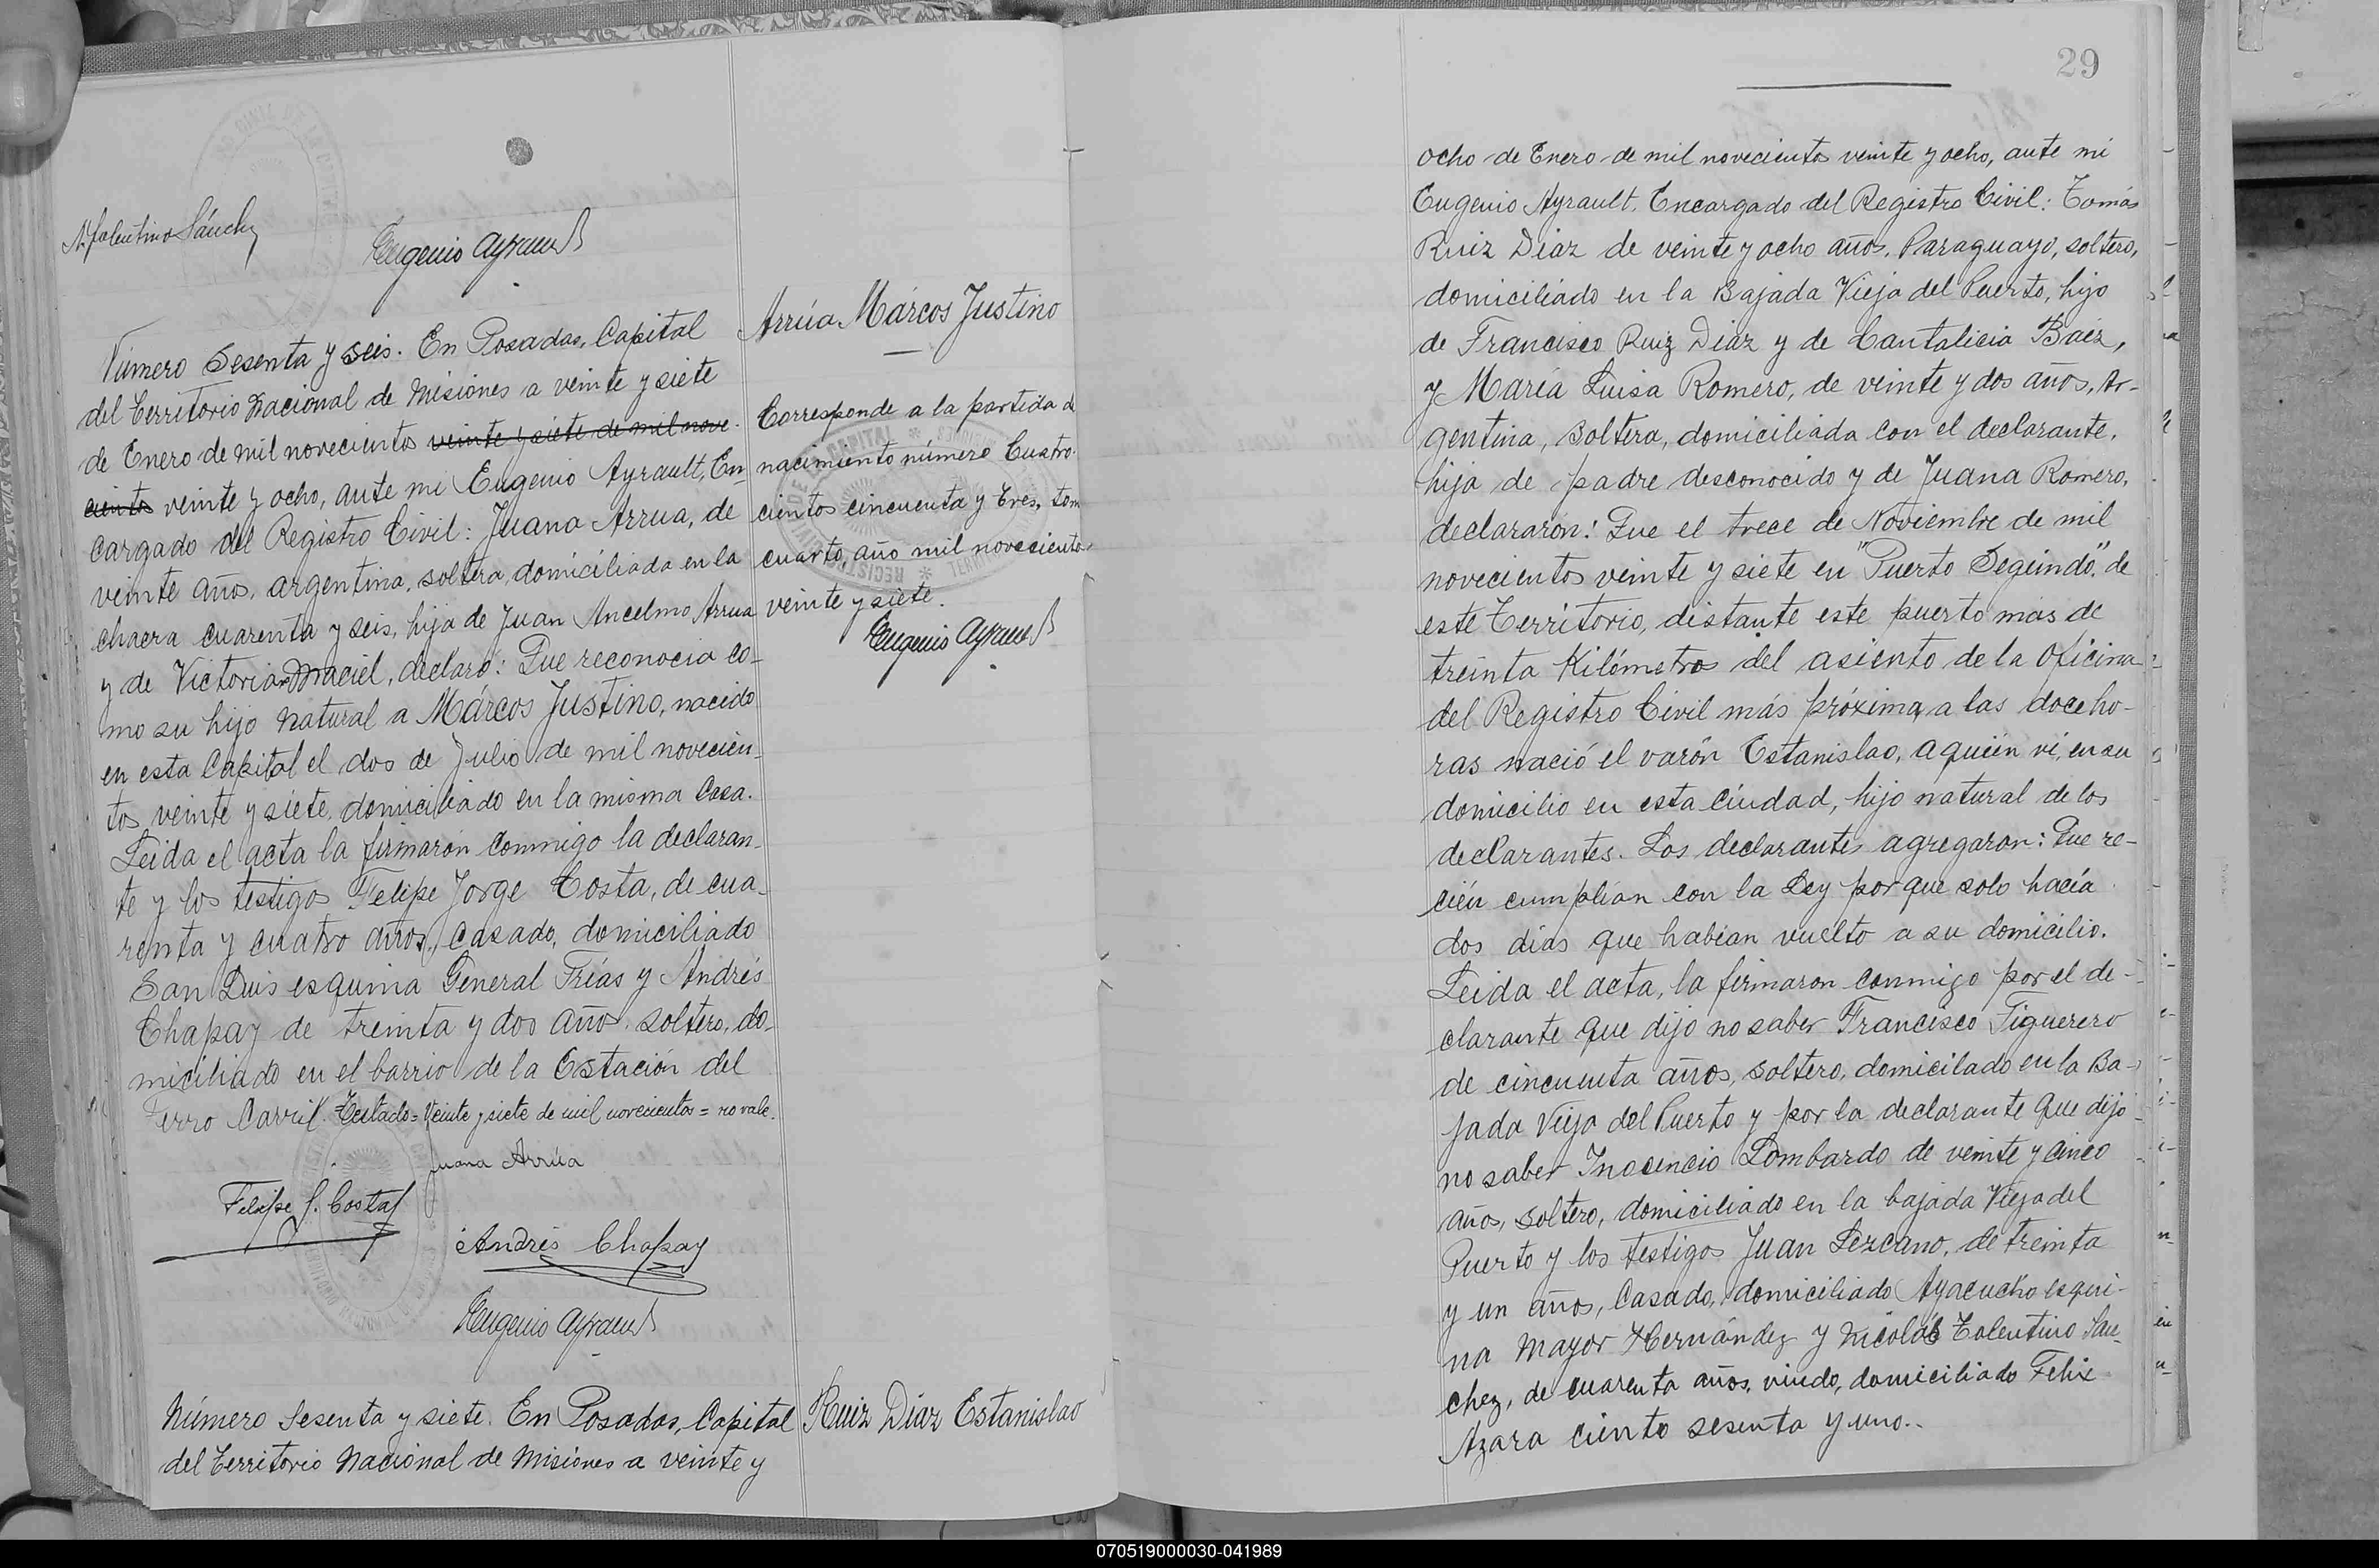 N. Tolentino Sánchez
Eugenio Ayrault
Número Sesenta y seis. En Posadas, Capital
del Territorio Nacional de Misiones a veinte y siete
de Enero de mil novecientos veinte y siete de mil nove-
cientos veinte y ocho, ante mi Eugenio Ayrault, En-
cargado del Registro Civil: Juana Arrua, de
veinte años, argentina, soltera, domiciliada en la
chacra cuarenta y seis, hija de Juan Ancelmo Arrua
y de Victoriana Maciel, declaró: Que reconocia co-
mo su hijo natural a Márcos Justino, nacido
en esta Capital el dos de Julio de mil novecien-
tos veinte y siete, domiciliado en la misma Casa.
Leida el acta la firmarón conmigo la declaran-
te y los testigos Felipe Jorge Costa, de cua-
renta y cuatro años, Casado, domiciliado
San Luis esquina General Frías y Andrés
Chapay de treinta y dos años, soltero, do-
miciliado en el barrio de la Estación del
Ferro Carril. Testado = Veinte y siete de mil novecientos = no vale.
Juana Arrúa
Felipe J. Costa
Andrés Chapay
Eugenio Ayrault
Arrúa Márcos Justino
Corresponde a la partida d
nacimiento número Cuatro-
cientos cincuenta y Tres, tom
cuarto, año mil novecientos
veinte y siete.
Eugenio Ayrault
Número Sesenta y siete. En Posadas, Capital
del Territorio Nacional de Misiones a veinte y
Ruiz Díaz Estanislao
29
ocho de Enero de mil novecientos veinte y ocho, ante mi
Eugenio Ayrault, Encargado del Registro Civil: Tomás
Ruiz Diaz de veinte y ocho años, Paraguayo, soltero,
domiciliado en la Bajada Vieja del Puerto, hijo
de Francisco Ruiz Diaz y de Cantalicia Baéz,
y María Luisa Romero, de veinte y dos años, Ar-
gentina, Soltera, domiciliada con el declarante,
hija de padre desconocido y de Juana Romero,
declararón: Que el trece de Noviembre de mil
novecientos veinte y siete en "Puerto Segundo", de
este Territorio, distante este puerto mas de
treinta Kilómetros del asiento de la Oficina
del Registro Civil más próxima, a las doce ho-
ras nació el varón Estanislao, a quién ví, en su
domicilio en esta ciudad, hijo natural de los
declarantes. Los declarantes agregaron: Que re-
cién cumplían con la Ley porque solo hacía
dos dias que habían vuelto a su domicilio.
Leida el acta, la firmaron conmigo por el de-
clarante que dijo no saber Francisco Figuerero
de cincuenta años, soltero, domicilado en la Ba-
jada Vieja del Puerto y por la declarante que dijo
no saber Inocencio Lombardo de veinte y cinco
años, soltero, domiciliado en la bajada Vieja del
Puerto y los testigos Juan Lezcano, de treinta
y un años, Casado, domiciliado Ayacucho esqui-
na Mayor Hernández y Nicolás Tolentino San-
chez, de cuarenta años, viudo, domiciliado Felix
Azara ciento sesenta y uno.
070519000030-041989